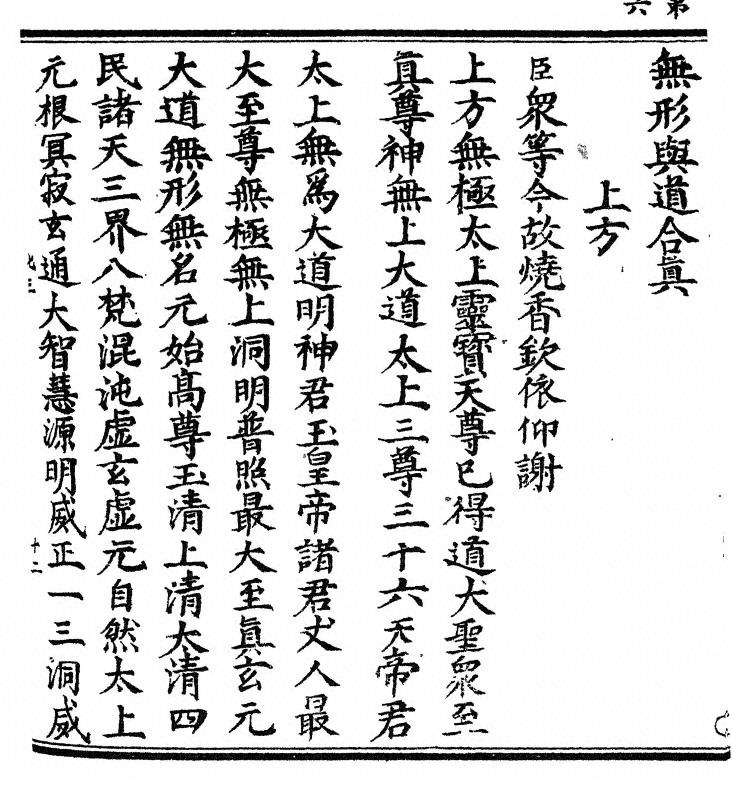 第
六
無形與道合眞
上方
臣衆等今故燒香欽依仰謝
上方無極太上靈寶天尊已得道大聖衆至
眞尊神無上大道太上三尊三十六天帝君
太上無爲大道明神君玉皇帝諸君丈人最
大至尊無極無上洞明普照最大至眞玄元
大道無形無名元始高尊玉清上清太清四
民諸天三界八梵混沌虛玄虛元自然太上
元根冥寂玄通大智慧源明威正一三洞威
七三
十二